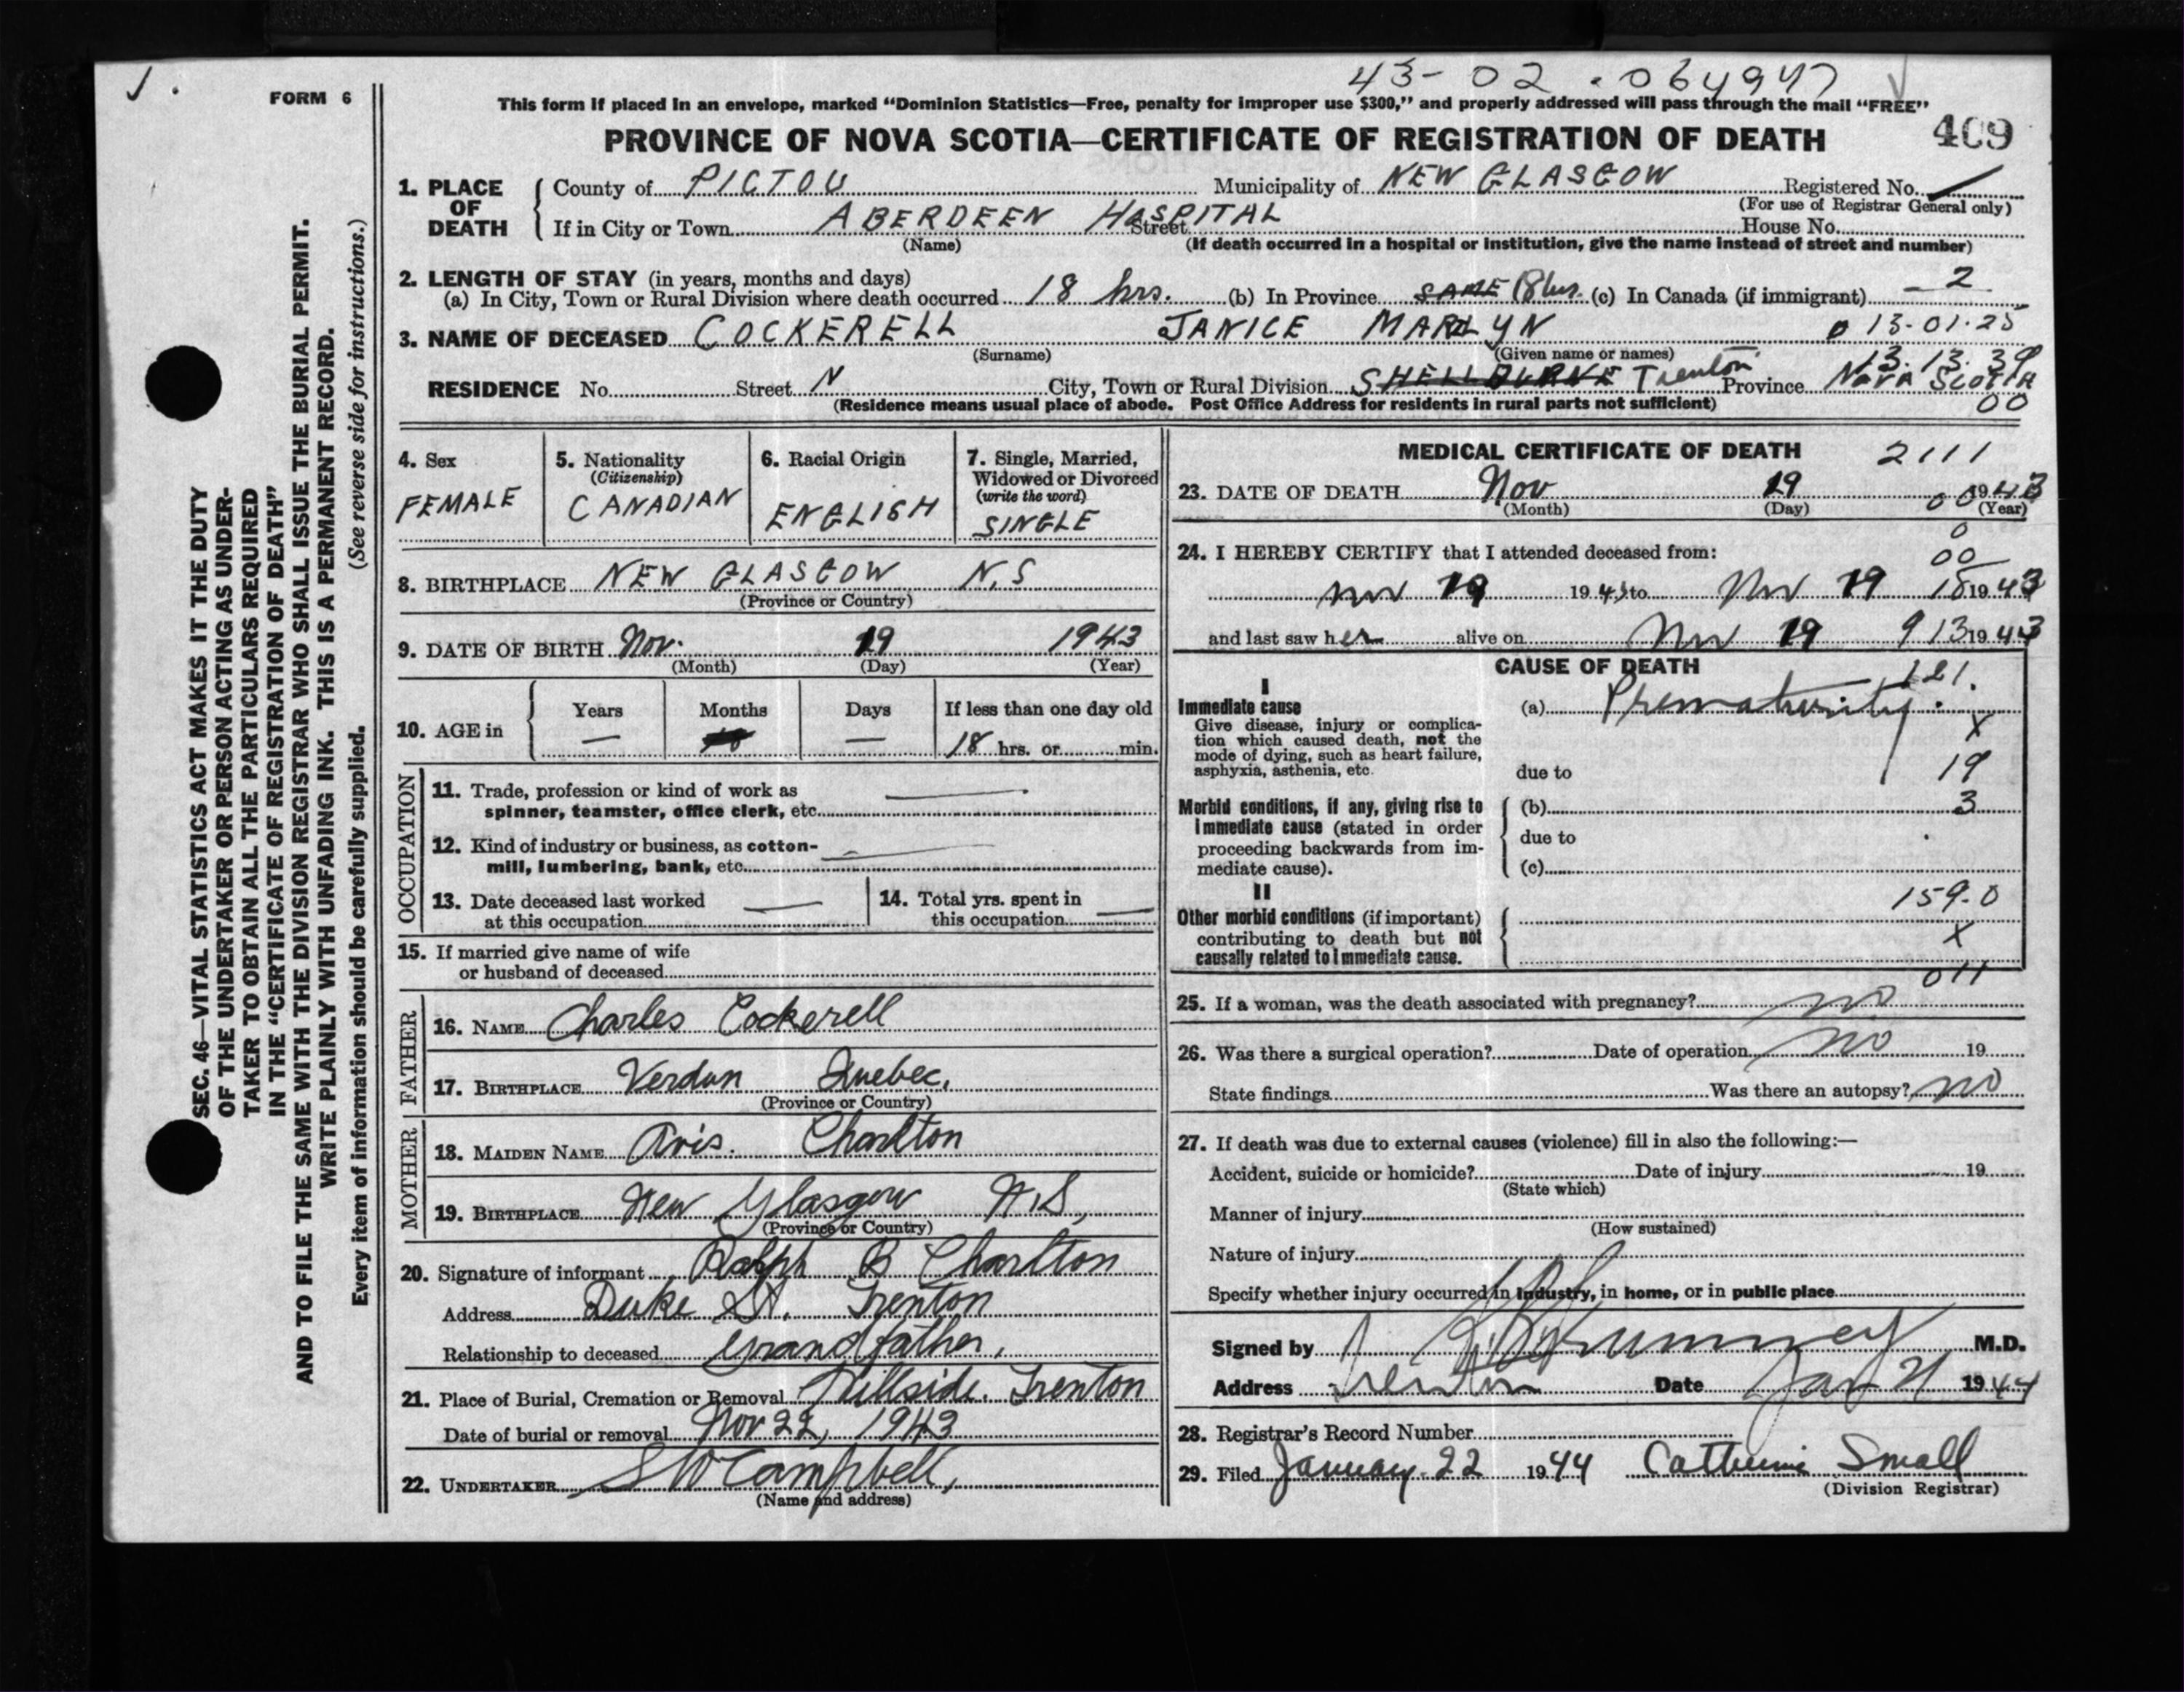 43-02-064947
FORM 6
This form if placed in an envelope, marked "Dominion Statistics—Free, penalty for improper use $300," and properly addressed will pass through the mail "FREE"
PROVINCE OF NOVA SCOTIA—CERTIFICATE OF REGISTRATION OF DEATH
409
1. PLACE OF DEATH County of PICTOU Municipality of NEW GLASGOW Registered No.
(For use of Registrar General only)
If in City or Town ABERDEEN HOSPITAL Street House No.
(Name) (If death occurred in a hospital or institution, give the name instead of street and number)
2. LENGTH OF STAY (in years, months and days)
(a) In City, Town or Rural Division where death occurred 18 hrs. (b) In Province SAME 18 hrs. (c) In Canada (if immigrant) 2
3. NAME OF DECEASED COCKERELL JANICE MARILYN 0 13-01-25
(Surname) (Given name or names) 13.13.39
RESIDENCE No. Street N City, Town or Rural Division SHELBURNE Trenton Province NOVA SCOTIA
(Residence means usual place of abode. Post Office Address for residents in rural parts not sufficient) 00
4. Sex
FEMALE
5. Nationality
(Citizenship)
CANADIAN
6. Racial Origin
ENGLISH
7. Single, Married,
Widowed or Divorced
(write the word)
SINGLE
8. BIRTHPLACE NEW GLASGOW N.S
(Province or Country)
9. DATE OF BIRTH Nov. 19 1943
(Month) (Day) (Year)
10. AGE in Years — Months Days — If less than one day old
18 hrs. or min.
OCCUPATION
11. Trade, profession or kind of work as
spinner, teamster, office clerk, etc.
12. Kind of industry or business, as cotton-
mill, lumbering, bank, etc.
13. Date deceased last worked
at this occupation
14. Total yrs. spent in
this occupation
15. If married give name of wife
or husband of deceased
FATHER
16. NAME Charles Cockerell
17. BIRTHPLACE Verdun Quebec,
(Province or Country)
MOTHER
18. MAIDEN NAME Avis. Charlton
19. BIRTHPLACE New Glasgow N.S,
(Province or Country)
20. Signature of informant Ralph B Charlton
Address Duke St. Trenton
Relationship to deceased Grandfather,
21. Place of Burial, Cremation or Removal Hillside. Trenton
Date of burial or removal Nov 22, 1943
22. UNDERTAKER S W Campbell,
(Name and address)
MEDICAL CERTIFICATE OF DEATH 2111
23. DATE OF DEATH Nov 19 1943
(Month) (Day) 00 (Year)
0
24. I HEREBY CERTIFY that I attended deceased from: 00
Nov 19 1943 to Nov 19 18 1943
and last saw her alive on Nov 19 913 1943
CAUSE OF DEATH
121.
I
Immediate cause
Give disease, injury or complica-
tion which caused death, not the
mode of dying, such as heart failure,
asphyxia, asthenia, etc.
(a) Prematurity.
X
due to 19
Morbid conditions, if any, giving rise to
immediate cause (stated in order
proceeding backwards from im-
mediate cause).
(b) 3
due to
(c)
II
Other morbid conditions (if important)
contributing to death but not
causally related to immediate cause.
159-0
X
011
25. If a woman, was the death associated with pregnancy? no
26. Was there a surgical operation? Date of operation no 19
State findings Was there an autopsy? no
27. If death was due to external causes (violence) fill in also the following:—
Accident, suicide or homicide? Date of injury 19
(State which)
Manner of injury
(How sustained)
Nature of injury
Specify whether injury occurred in industry, in home, or in public place
Signed by M.D.
Address Trenton Date Jan 21 1944
28. Registrar's Record Number
29. Filed January 22 1944 Catherine Small
(Division Registrar)
SEC. 46—VITAL STATISTICS ACT MAKES IT THE DUTY
OF THE UNDERTAKER OR PERSON ACTING AS UNDER-
TAKER TO OBTAIN ALL THE PARTICULARS REQUIRED
IN THE "CERTIFICATE OF REGISTRATION OF DEATH"
AND TO FILE THE SAME WITH THE DIVISION REGISTRAR WHO SHALL ISSUE THE BURIAL PERMIT.
WRITE PLAINLY WITH UNFADING INK. THIS IS A PERMANENT RECORD.
Every item of information should be carefully supplied. (See reverse side for instructions.)